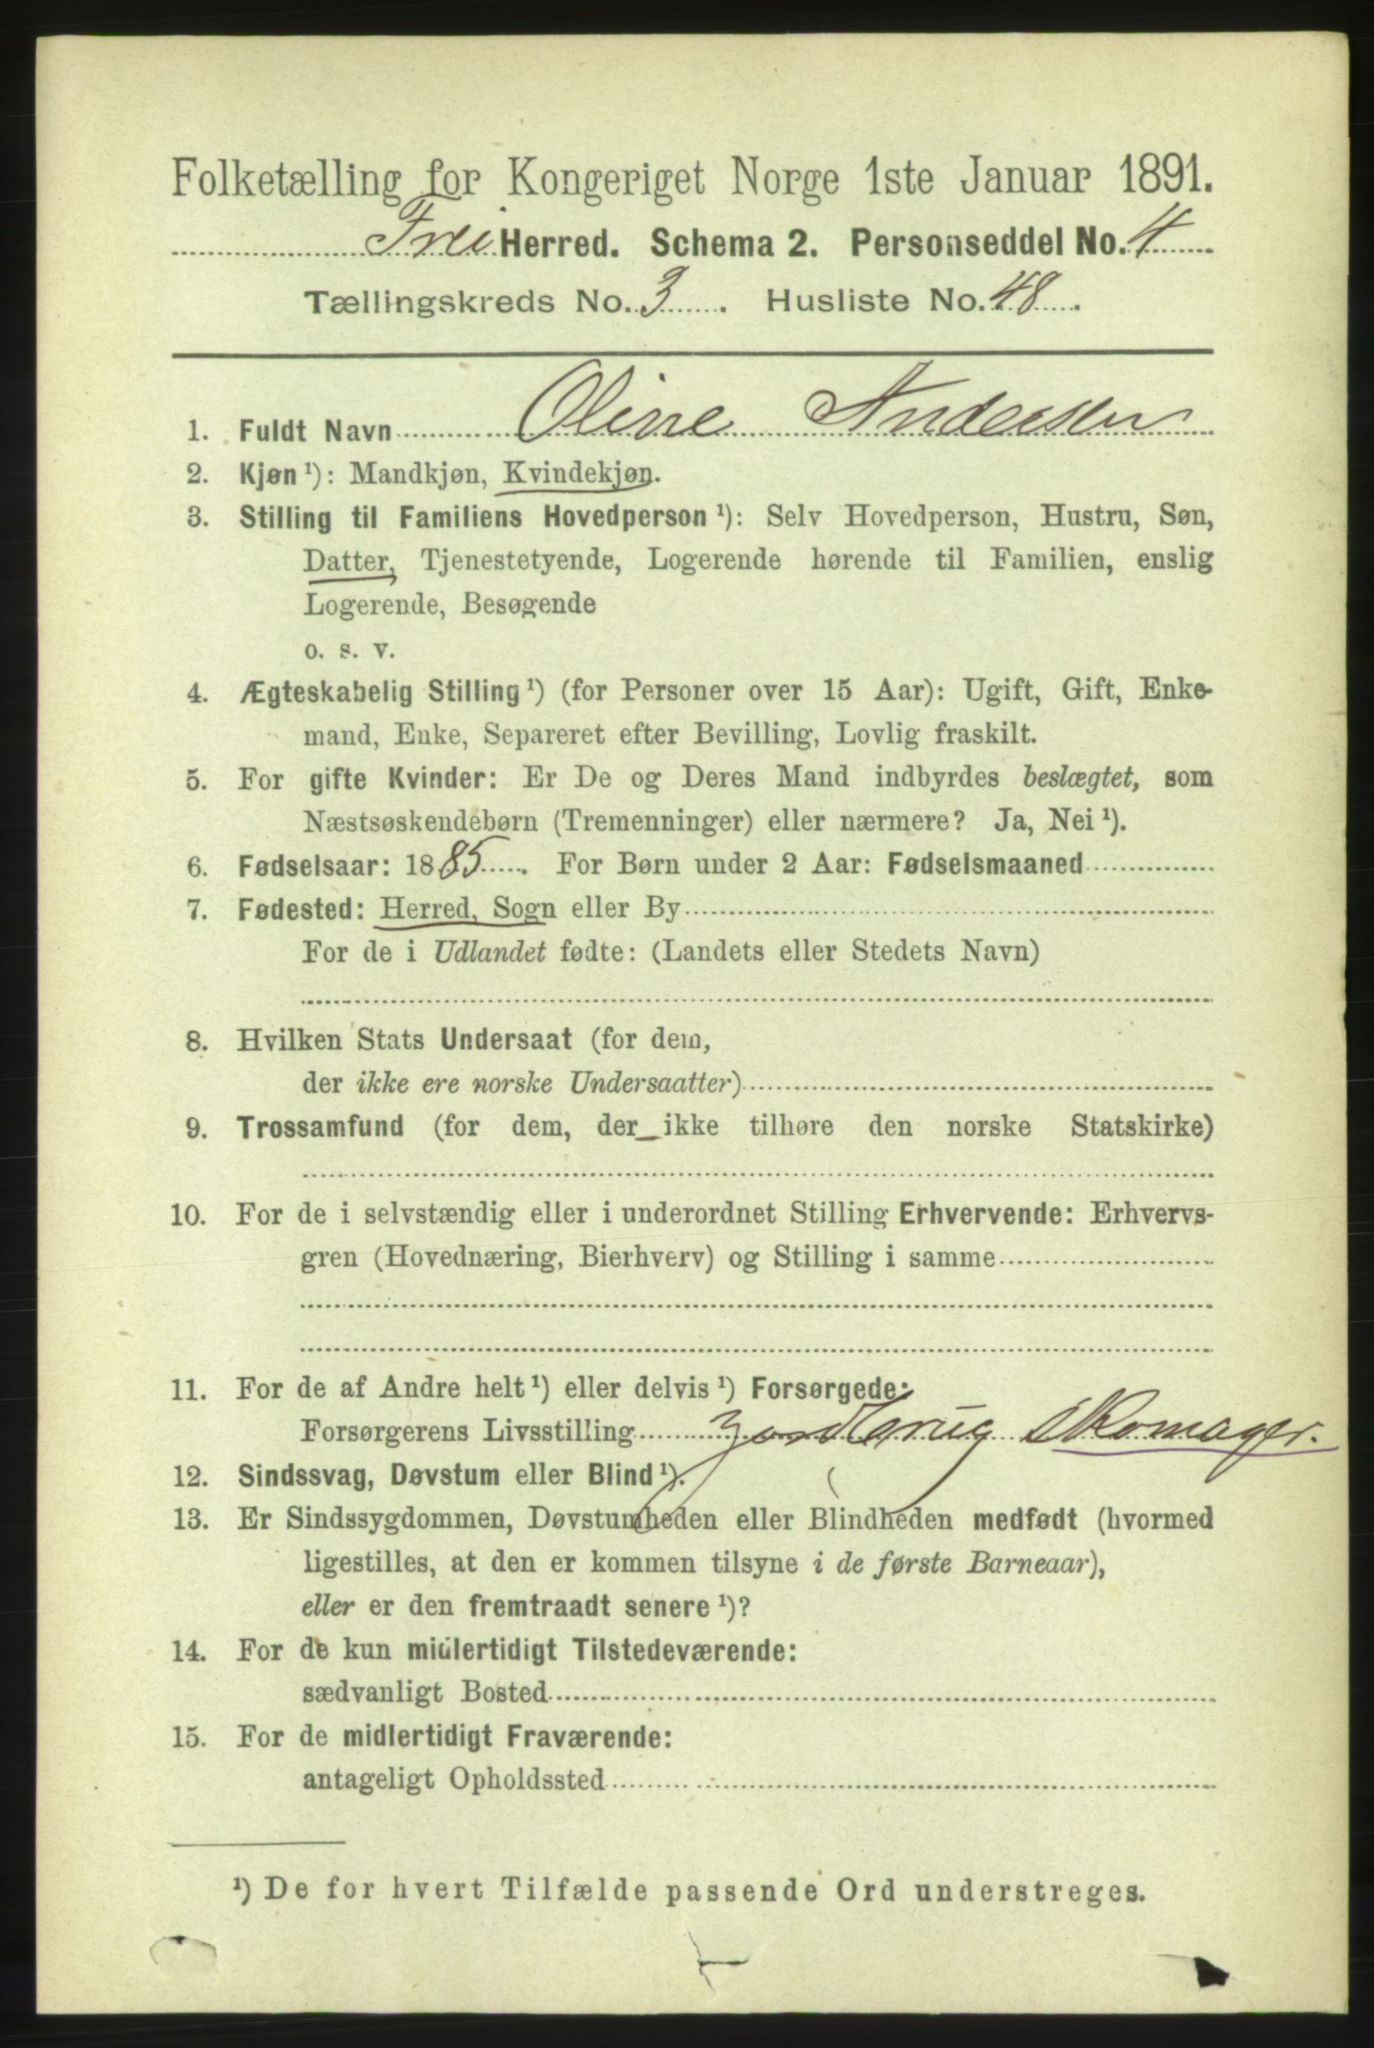 Folketælling for Kongeriget Norge 1ste Januar 1891.
Frei Herred. Schema 2. Personseddel No. 4
Tællingskreds No. 3. Husliste No. 48.
1. Fuldt Navn Oline Andersen
2. Kjøn ¹): Mandkjøn, Kvindekjøn.
3. Stilling til Familiens Hovedperson ¹): Selv Hovedperson, Hustru, Søn,
Datter, Tjenestetyende, Logerende hørende til Familien, enslig
Logerende, Besøgende
o. s. v.
4. Ægteskabelig Stilling ¹) (for Personer over 15 Aar): Ugift, Gift, Enke-
mand, Enke, Separeret efter Bevilling, Lovlig fraskilt.
5. For gifte Kvinder: Er De og Deres Mand indbyrdes beslægtet, som
Næstsøskendebørn (Tremenninger) eller nærmere? Ja, Nei ¹).
6. Fødselsaar: 1885. For Børn under 2 Aar: Fødselsmaaned
7. Fødested: Herred, Sogn eller By
For de i Udlandet fødte: (Landets eller Stedets Navn)
8. Hvilken Stats Undersaat (for dem,
der ikke ere norske Undersaatter)
9. Trossamfund (for dem, der ikke tilhøre den norske Statskirke)
10. For de i selvstændig eller i underordnet Stilling Erhvervende: Erhvervs-
gren (Hovednæring, Bierhverv) og Stilling i samme
11. For de af Andre helt ¹) eller delvis ¹) Forsørgede:
Forsørgerens Livsstilling Skomager.
12. Sindssvag, Døvstum eller Blind ¹).
13. Er Sindssygdommen, Døvstumheden eller Blindheden medfødt (hvormed
ligestilles, at den er kommen tilsyne i de første Barneaar),
eller er den fremtraadt senere ¹)?
14. For de kun midlertidigt Tilstedeværende:
sædvanligt Bosted
15. For de midlertidigt Fraværende:
antageligt Opholdssted
¹) De for hvert Tilfælde passende Ord understreges.